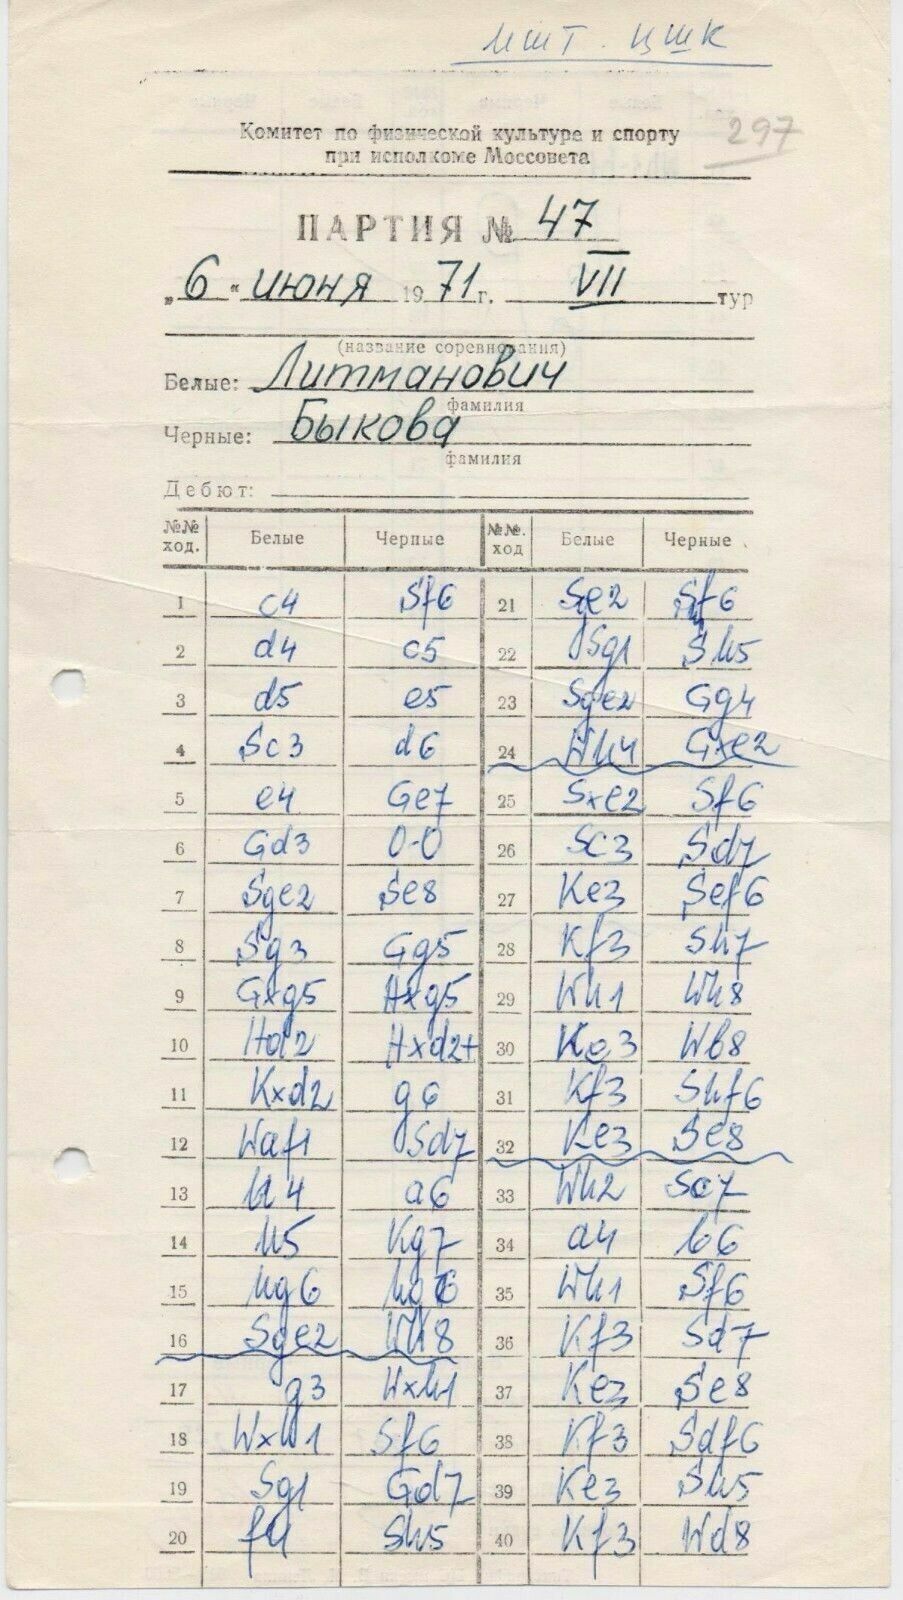 МШТ. ЦШК
297
Комитет по физической культуре и спорту
при исполкоме Моссовета
ПАРТИЯ № 47
„6“ июня 1971 г. VII тур
(название соревнования)
Белые: Литманович
фамилия
Черные: Быкова
фамилия
Дебют:
№№ ход. Белые Черные №№. ход Белые Черные
1 c4 Sf6 21 Se2 Sf6
2 d4 c5 22 Sg1 Sh5
3 d5 e5 23 Sge2 Gg4
4 Sc3 d6 24 Wh4 Gxe2
5 e4 Ge7 25 Sxe2 Sf6
6 Gd3 0-0 26 Sc3 Sd7
7 Sge2 Se8 27 Ke3 Sef6
8 Sg3 Gg5 28 Kf3 Sh7
9 Gxg5 Hxg5 29 Wh1 Wh8
10 Hd2 Hxd2+ 30 Ke3 Wb8
11 Kxd2 g6 31 Kf3 Shf6
12 Waf1 Sd7 32 Ke3 Se8
13 h4 a6 33 Wh2 Sc7
14 h5 Kg7 34 a4 b6
15 hg6 hg6 35 Wh1 Sf6
16 Sge2 Wh8 36 Kf3 Sd7
17 g3 Wxh1 37 Ke3 Se8
18 Wxh1 Sf6 38 Kf3 Sdf6
19 Sg1 Gd7 39 Ke3 Sh5
20 f4 Sh5 40 Kf3 Wd8